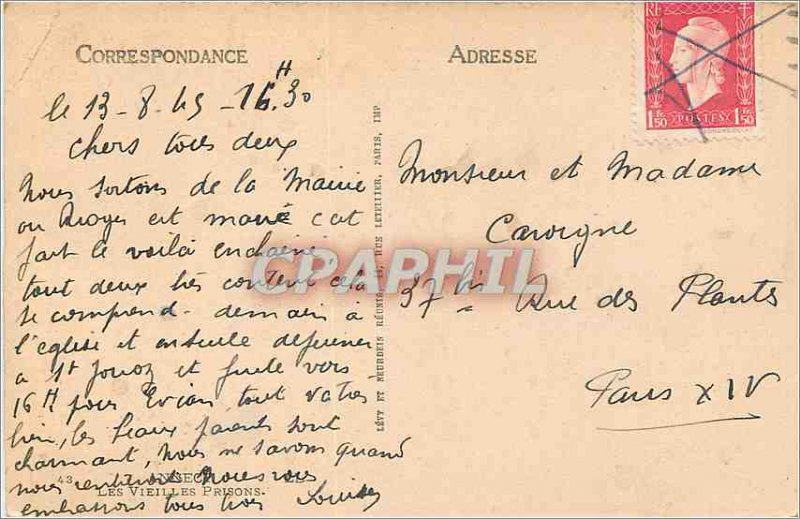 CORRESPONDANCE
ADRESSE
RF
1Fr50 POSTES 1Fr50
le 13-8-45-16H30
chers tous deux
Nous sortons de la Mairie
ou Roger est marié c'est
fait le voilà enchaîné
tout deux très content cela
se comprend. demain à
l'église et ensuite déjeuner
a St Jorioz et filute vers
16H pour Evian tout va très
bien, les beaux parents sont
charmant, nous ne savons quand
nous rentrons Nous vous
embrassons tous trois Louise
43 ANNECY
LES VIEILLES PRISONS.
LÉVY ET NEURDEIN RÉUNIS, RUE LETELLIER, PARIS, IMP
Monsieur et Madame
Cavoigne
97 bis Rue des Plantes
Paris XIV
CPAPHIL